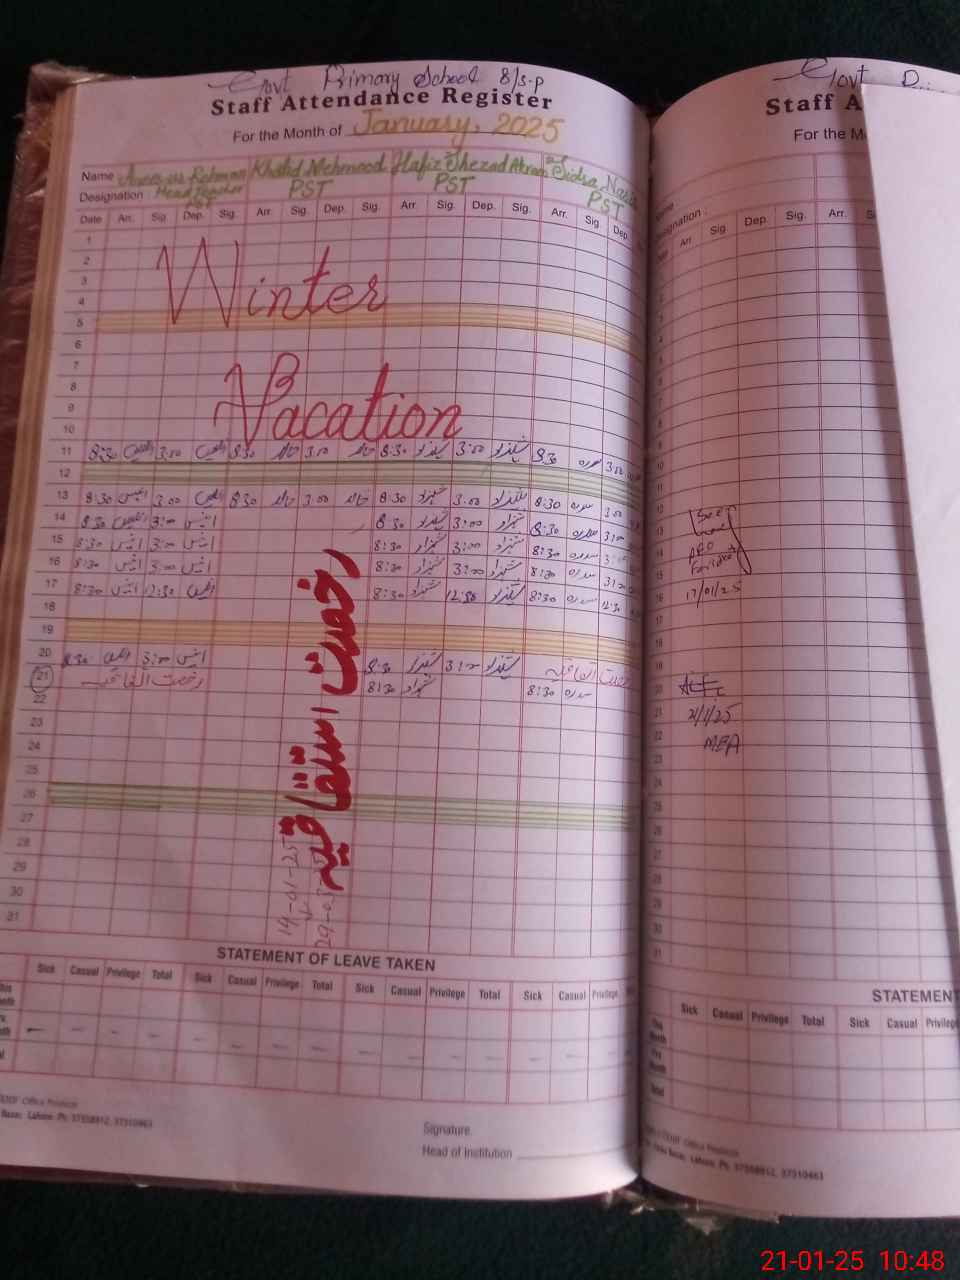 Govt Primary School 8/S.P
Staff Attendance Register
For the Month of January, 2025
Name Anees ur Rehman Khalid Mehmood Hafiz Shezad Akram Sidra
Designation Head Teacher PST PST PST
Date Arr. Sig. Dep. Sig. Arr. Sig. Dep. Sig. Arr. Sig. Dep. Sig. Arr. Sig. Dep.
1
2
Winter
3
4
5
6
7
Vacation
8
9
10
11 8:30 انیس 3:00 انیس 8:30 خالد 3:00 خالد 8:30 شہزاد 3:00 شہزاد 8:30 سدرہ 3:00
12
13 8:30 انیس 3:00 انیس 8:30 خالد 3:00 خالد 8:30 شہزاد 3:00 شہزاد 8:30 سدرہ 3:00
14 8:30 انیس 3:00 انیس 8:30 شہزاد 3:00 شہزاد 8:30 سدرہ 3:00
15 8:30 انیس 3:00 انیس 8:30 شہزاد 3:00 شہزاد 8:30 سدرہ 3:00
16 8:30 انیس 3:00 انیس 8:30 شہزاد 3:00 شہزاد 8:30 سدرہ 3:00
17 8:30 انیس 12:30 انیس 8:30 شہزاد 12:30 شہزاد 8:30 سدرہ 12:30
18
19
20 8:30 انیس 3:00 انیس 8:30 شہزاد 3:00 شہزاد رخصت اتفاقیہ
21 رخصت اتفاقیہ 8:30 شہزاد 8:30 سدرہ
22
23
24
25
26
27
28
29
30
31
رخصت استقاقیہ
14-01-25
STATEMENT OF LEAVE TAKEN
Sick Casual Privilege Total Sick Casual Privilege Total Sick Casual Privilege Total Sick Casual Privilege
Office Products
Lahore. Ph: 37358812, 37310463
Signature.
Head of Institution
Govt
Staff A
For the M
Designation :
Arr. Sig. Dep. Sig. Arr.
Seen
17/01/25
21/1/25
MEA
STATEMENT
Sick Casual Privilege Total Sick Casual Privilege
Total
Office Products
Lahore. Ph: 37358812, 37310463
21-01-25 10:48